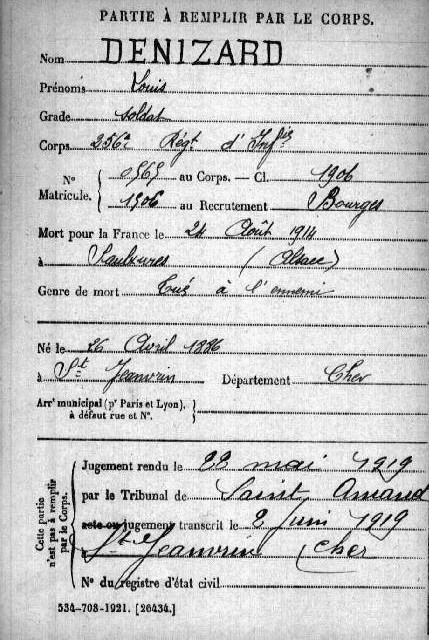 PARTIE À REMPLIR PAR LE CORPS.
Nom DENIZARD
Prénoms Louis
Grade soldat
Corps 256e Régt d'Infie
No 0969 au Corps. — Cl. 1906
Matricule. 1906 au Recrutement Bourges
Mort pour la France le 24 Août 1914
à Saulxures (Alsace)
Genre de mort Tué à l'ennemi
Né le 26 Avril 1886
à St Jeanvrin Département Cher
Arrt municipal (pr Paris et Lyon),
à défaut rue et No.
Cette partie
n'est pas à remplir
par le Corps.
Jugement rendu le 22 mai 1919
par le Tribunal de Saint Amand
acte ou jugement transcrit le 2 Juin 1919
à St Jeanvrin Cher
No du registre d'état civil
534-708-1921. [26434.]